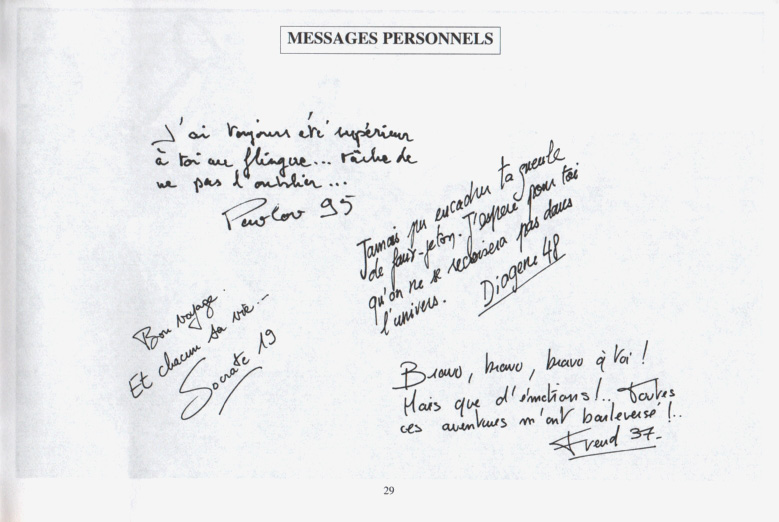 MESSAGES PERSONNELS
J'ai toujours été supérieur
à toi au flingue... tâche de
ne pas l'oublier...
Pavlov 95
Jamais pu encadrer ta gueule
de faux-jeton. J'espère pour toi
qu'on ne se recroisera pas dans
l'univers.
Diogène 48
Bon voyage.
Et chacun sa vie...
Socrate 19
Bravo, bravo, bravo à toi !
Mais que d'émotions !.. Toutes
ces aventures m'ont bouleversé !..
Freud 37.
29